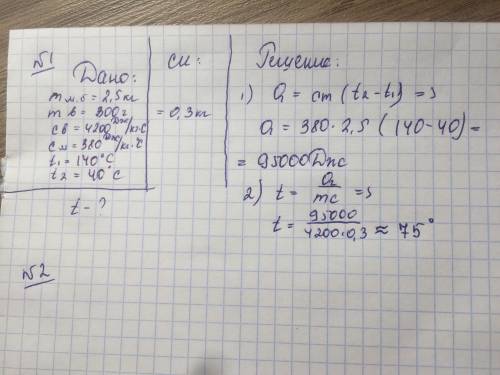 №1
Дано:
m м.б = 2,5 кг
m в = 300 г
cв = 4200 Дж/кг·°С
cм = 380 Дж/кг·°С
t₁ = 140°С
t₂ = 40°С
t - ?
СИ:
= 0,3 кг
Решение:
1) Q = cm (t₂ - t₁) =>
Q = 380 · 2,5 (140 - 40) =
= 95000 Дж
2) t = Q/mc =>
t = 95000/4200·0,3 ≈ 75°
№2